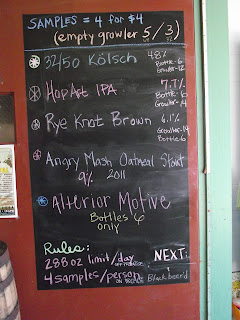 SAMPLES = 4 for $4
(empty growler 5/3)
32/50 Kölsch 4.8%
Bottle-6
Growler-12
Hop Art IPA 7.7%
Bottle-6
Growler-14
Rye Knot Brown 6.1%
Growler-14
Bottle-6
Angry Mash Oatmeal Stout
9% 2011
Alterior Motive
Bottles 6
only
Rules:
288 oz limit/day OFF PREMISE
4 samples/person ON PREMISE
NEXT:
Blackbeer'd